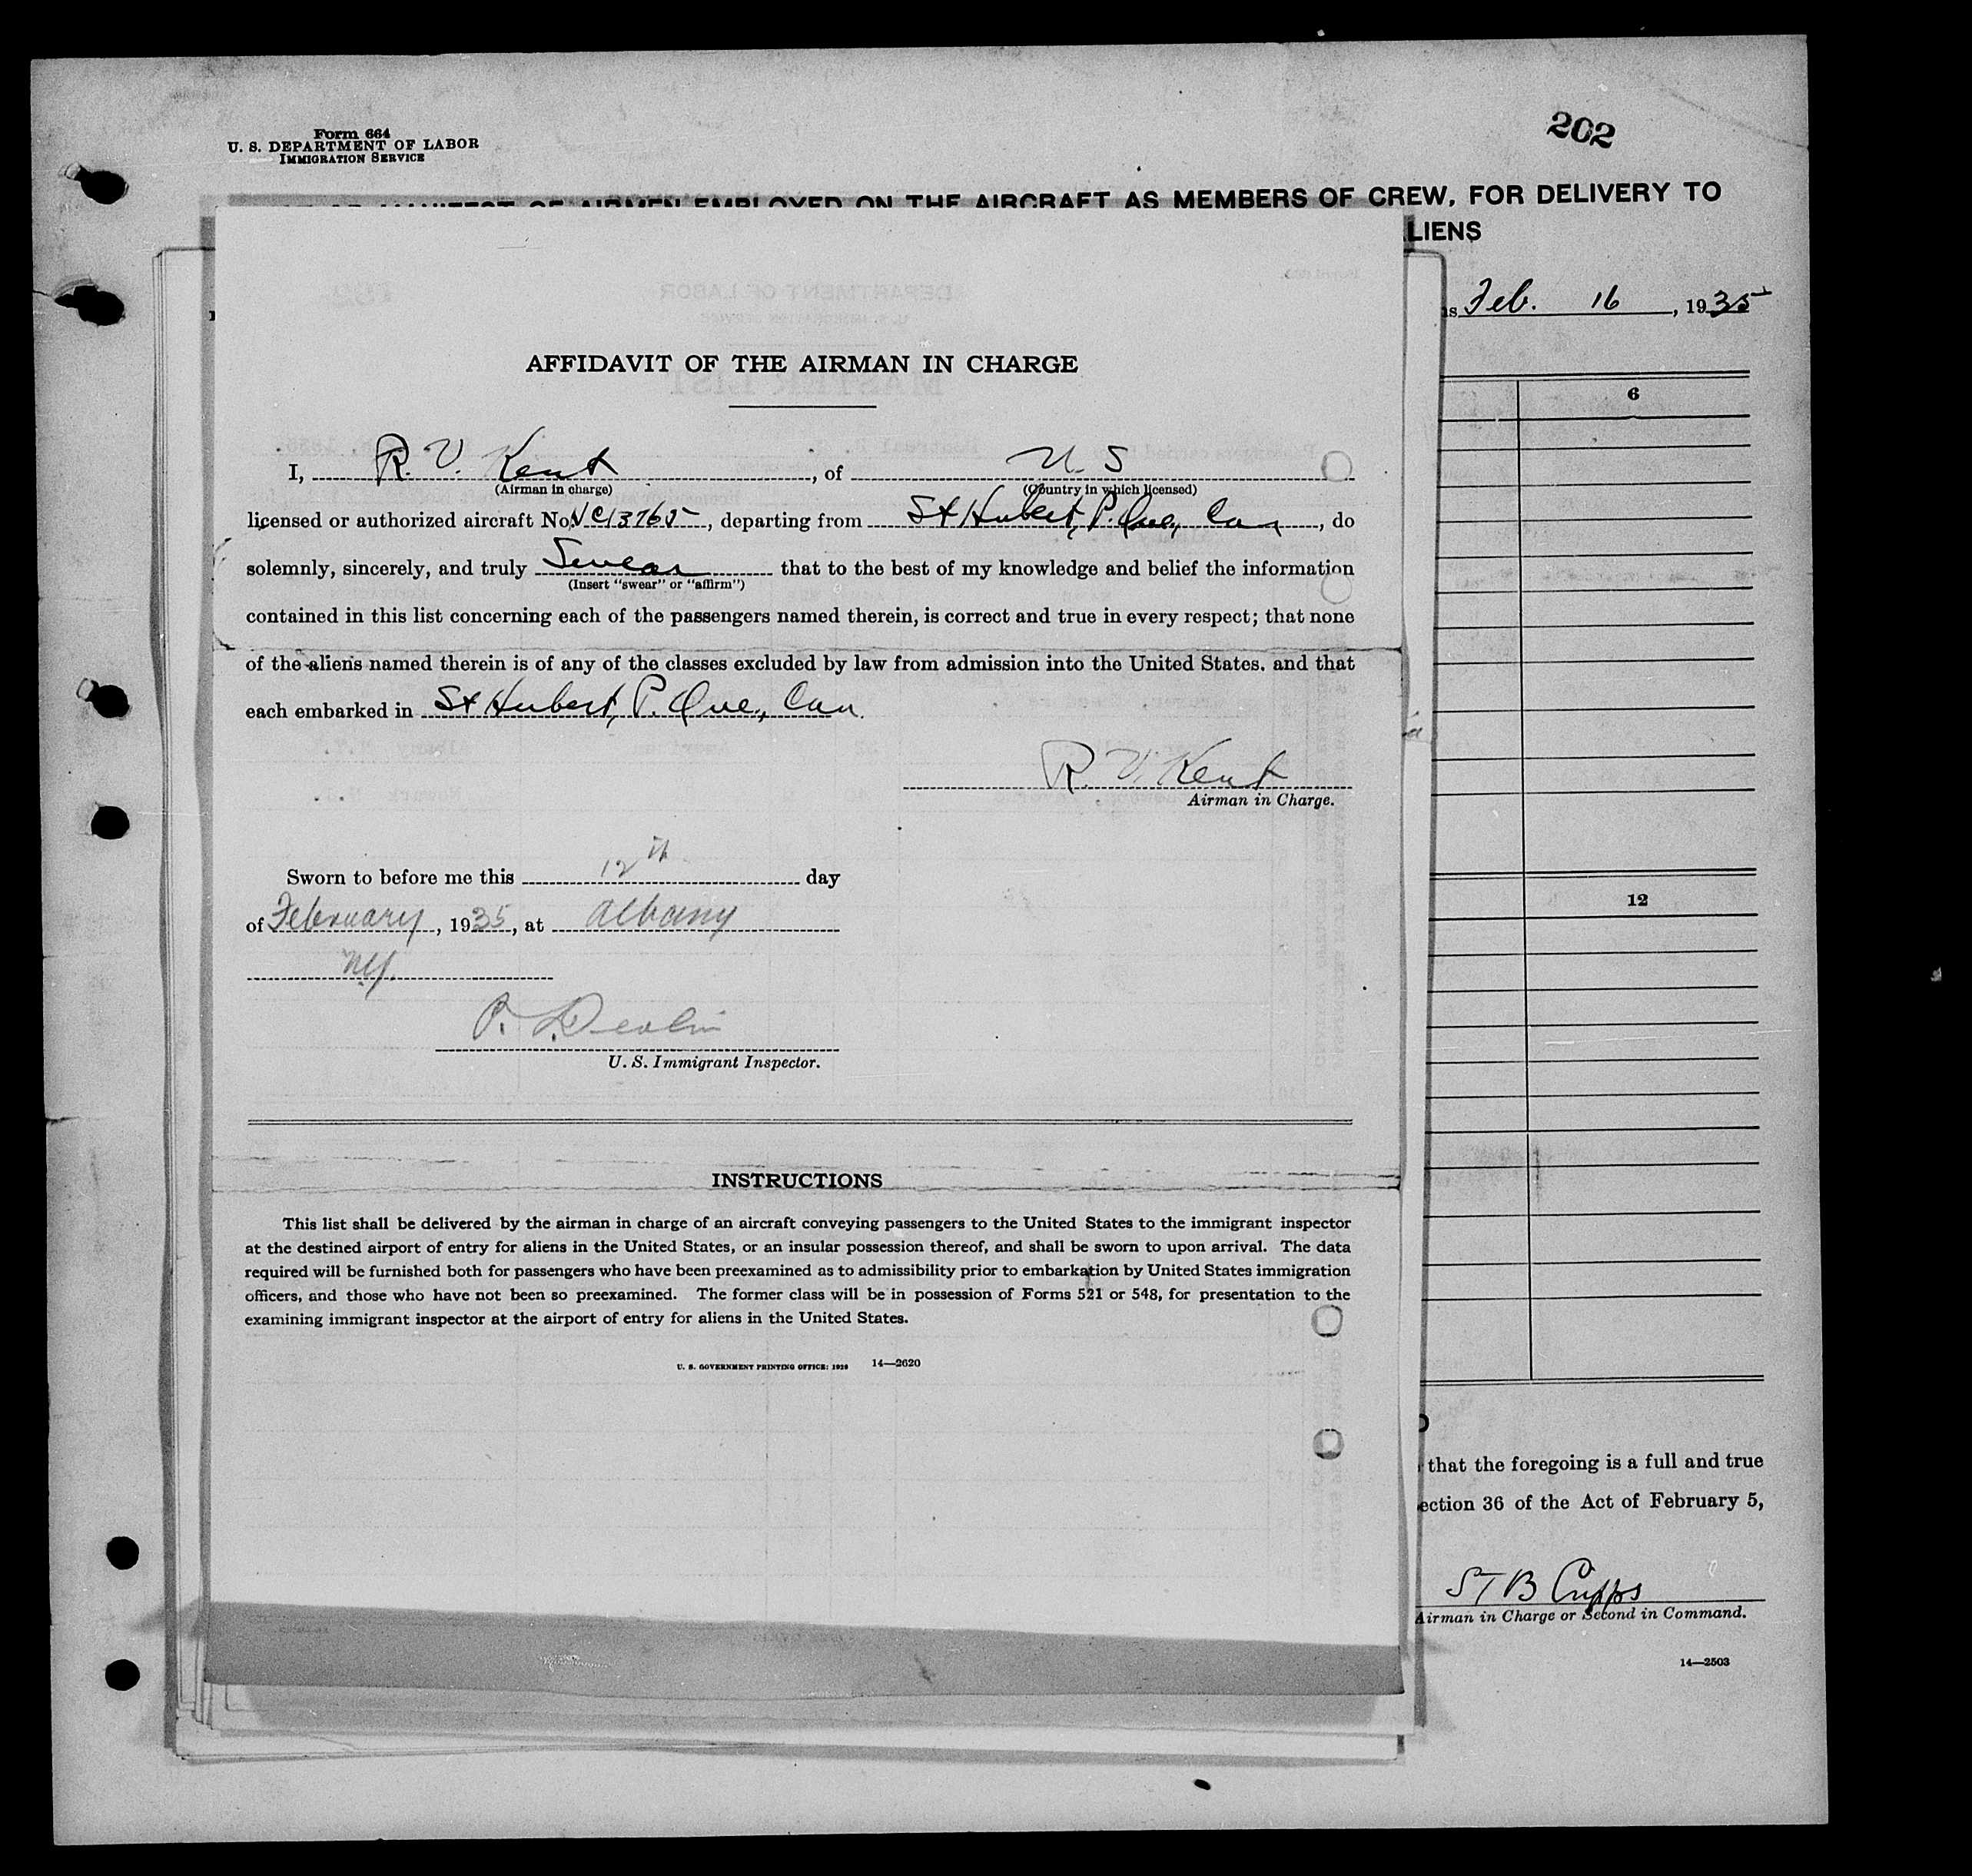 Form 664
U. S. DEPARTMENT OF LABOR
IMMIGRATION SERVICE
202
MANIFEST OF AIRMEN EMPLOYED ON THE AIRCRAFT AS MEMBERS OF CREW, FOR DELIVERY TO
LIENS
Feb. 16, 1935
6
12
AFFIDAVIT OF THE AIRMAN IN CHARGE
I, R. V. Kent, of U. S
(Airman in charge) (Country in which licensed)
licensed or authorized aircraft No. NC13765, departing from St Hubert, P. Que, Can, do
solemnly, sincerely, and truly Swear that to the best of my knowledge and belief the information
(Insert "swear" or "affirm")
contained in this list concerning each of the passengers named therein, is correct and true in every respect; that none
of the aliens named therein is of any of the classes excluded by law from admission into the United States. and that
each embarked in St Hubert, P. Que., Can.
R. V. Kent
Airman in Charge.
Sworn to before me this 12th day
of February, 1935, at Albany
N.Y.
P. Devlin
U. S. Immigrant Inspector.
INSTRUCTIONS
This list shall be delivered by the airman in charge of an aircraft conveying passengers to the United States to the immigrant inspector
at the destined airport of entry for aliens in the United States, or an insular possession thereof, and shall be sworn to upon arrival. The data
required will be furnished both for passengers who have been preexamined as to admissibility prior to embarkation by United States immigration
officers, and those who have not been so preexamined. The former class will be in possession of Forms 521 or 548, for presentation to the
examining immigrant inspector at the airport of entry for aliens in the United States.
U. S. GOVERNMENT PRINTING OFFICE: 1929 14—2620
that the foregoing is a full and true
ection 36 of the Act of February 5,
S T B Cripps
Airman in Charge or Second in Command.
14—2503